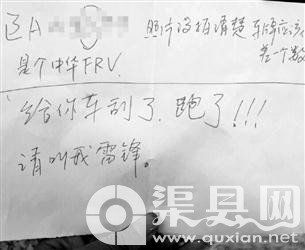 辽A
照片没拍清楚 车牌应该
差一个数
是个中华FRV.
给你车刮了.跑了!!!
请叫我雷锋。
渠县网
www.quxian.net